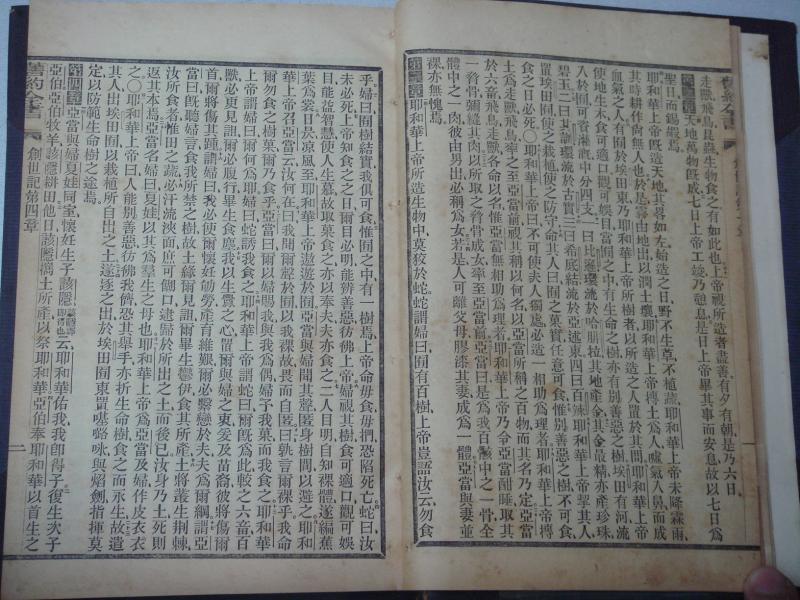 走獸飛鳥昆蟲生物食之有如此也上帝視所造者盡善有夕有朝是乃六日
第二章天地萬物旣成七日上帝工竣乃憩息是日上帝畢其事而安息故以七日爲
聖日而錫嘏焉
耶和華上帝旣造天地其畧如左始造之日野不生草不植蔬耶和華上帝未降霖雨
其時耕作尙無人也於是霧由地出以潤土壤耶和華上帝摶土爲人噓氣入鼻而成
血氣之人有囿於埃田東乃耶和華上帝所樹者以所造之人置於其間耶和華上帝
使地生木食可適口觀可娛目當囿之中有生命之樹亦有別善惡之樹埃田有河流
入於囿可資灌漑中分四支一曰比遜環流於哈腓拉其地產金其金最精亦產珍珠
碧玉二曰其訓環流於古實三曰希底結流於亞述東四曰百辣耶和華上帝挈其人
置埃田囿使之栽植使之防守命其人曰囿之菓實任意可食惟別善惡之樹不可食
食之日必死〇耶和華上帝曰不可使夫人獨處必造一相助爲理者耶和華上帝摶
土爲走獸飛鳥率之至亞當前視其稱以何名以亞當所稱之百物而其名乃定亞當
於六畜飛鳥走獸各命以名惟亞當無相助爲理者耶和華上帝乃令亞當酣睡取其
一脅骨彌縫其肉以所取之脅骨成女率至亞當前亞當曰是爲我百骸中之一骨全
體中之一肉彼由男出必稱爲女若是人可離父母膠漆其妻成爲一體亞當與妻並
裸亦無愧焉
第三章耶和華上帝所造生物中莫狡於蛇蛇謂婦曰囿有百樹上帝豈語汝云勿食
乎婦曰囿樹結實我俱可食惟囿之中有一樹焉上帝命毋食毋捫恐陷死亡蛇曰汝
未必死上帝知食之之日爾目必明能辨善惡彷彿上帝婦視其樹食可適口觀可娛
目能益智慧使人生慕故取菓食之亦以奉夫夫亦食之二人目明自知裸體遂編蕉
葉爲裳日昃凉風至耶和華上帝遨遊於囿亞當與婦聞其聲匿身樹間以避之耶和
華上帝召亞當云汝何在曰我聞爾聲於囿以我裸故畏而自匿曰孰言爾裸乎我命
爾勿食之樹菓爾乃食乎亞當曰爾以婦賜我與我爲偶婦予我菓而我食耶和華
上帝謂婦曰爾何爲婦曰蛇誘我食之耶和華上帝謂蛇曰爾旣爲此較之六畜百
獸必更見詛爾必腹行畢生食塵我以生釁之心置爾與婦之衷爰及苗裔彼將傷爾
首爾將傷其踵謂婦曰我必使爾懷妊劬勞產育維艱爾必繫戀於夫夫爲爾綱謂亞
當曰爾旣聽婦言食我所禁之樹故土緣爾見詛爾畢生鬱伊食其所產土將叢生荆棘
汝所食者惟田之蔬必汗流浹面庶可餬口逮歸於所出之土而後已汝身乃土死則
返其本焉亞當名婦曰夏娃以其爲羣生之母也耶和華上帝爲亞當及婦作皮衣衣
之〇耶和華上帝曰人能別善惡彷彿我儕恐其舉手亦折生命樹食之而永生故遣
其人出埃田囿以栽植所自出之土遂逐之出於埃田囿東置𡃤嚧啉與焰劍指揮莫
定以防範生命樹之途焉
第四章亞當與婦夏娃同室懷妊生子該隱云耶和華佑我我卽得子復生次子
亞伯亞伯牧羊該隱耕田他日該隱攜土所產以祭耶和華亞伯奉耶和華以首生之
舊約全書
創世記第四章
二